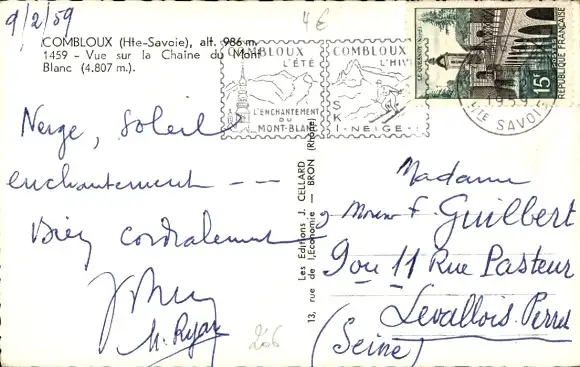 9/2/59
4€
COMBLOUX (Hte-Savoie), alt. 986 m.
1459 - Vue sur la Chaîne du Mont
Blanc (4.807 m.).
COMBLOUX
L'ÉTÉ
L'ENCHANTEMENT
DU
MONT-BLANC
COMBLOUX
L'HIV
SKI-NEIGE
15F
POSTES
REPUBLIQUE FRANÇAISE
1959
HTE SAVOIE
Neige, Soleil
enchantement --
Bien cordialement
Les Editions J. CELLARD
13, rue de l'Economie — BRON (Rhône)
Madame
F. Guilbert
9 ou 11 Rue Pasteur
Levallois-Perret
(Seine)
206